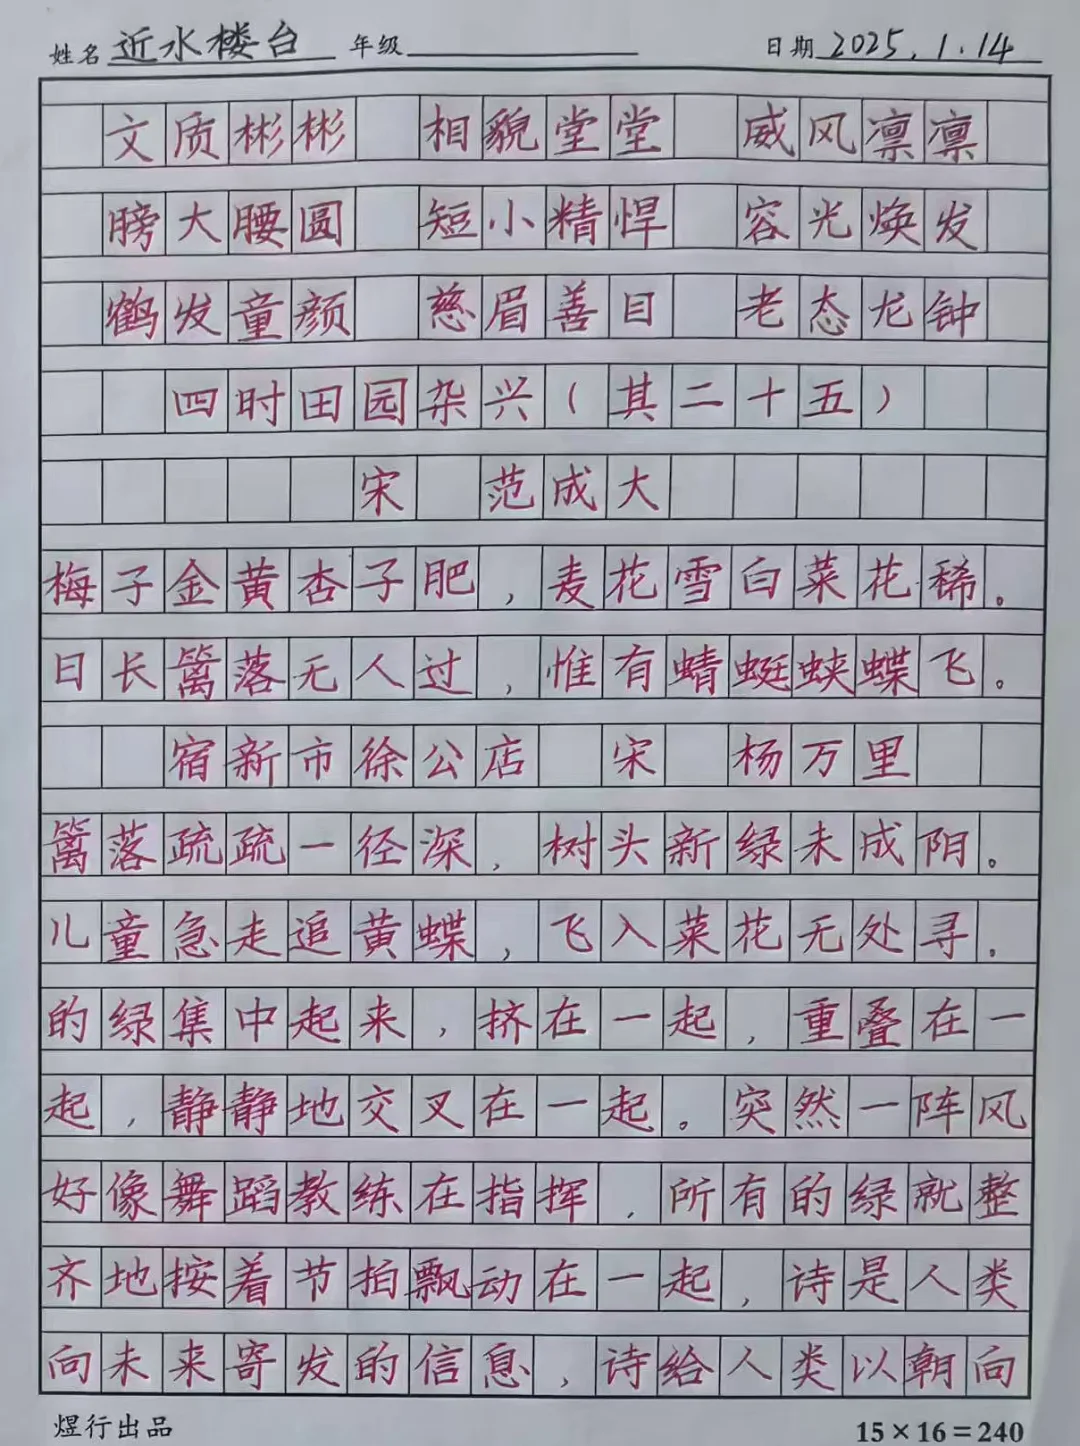 姓名 近水楼台 年级 日期 2025.1.14
文质彬彬 相貌堂堂 威风凛凛
膀大腰圆 短小精悍 容光焕发
鹤发童颜 慈眉善目 老态龙钟
四时田园杂兴(其二十五)
宋 范成大
梅子金黄杏子肥,麦花雪白菜花稀。
日长篱落无人过,惟有蜻蜓蛱蝶飞。
宿新市徐公店 宋 杨万里
篱落疏疏一径深,树头新绿未成阴。
儿童急走追黄蝶,飞入菜花无处寻.
的绿集中起来,挤在一起,重叠在一
起,静静地交叉在一起。突然一阵风
好像舞蹈教练在指挥,所有的绿就整
齐地按着节拍飘动在一起,诗是人类
向未来寄发的信息,诗给人类以朝向
煜行出品 15×16=240